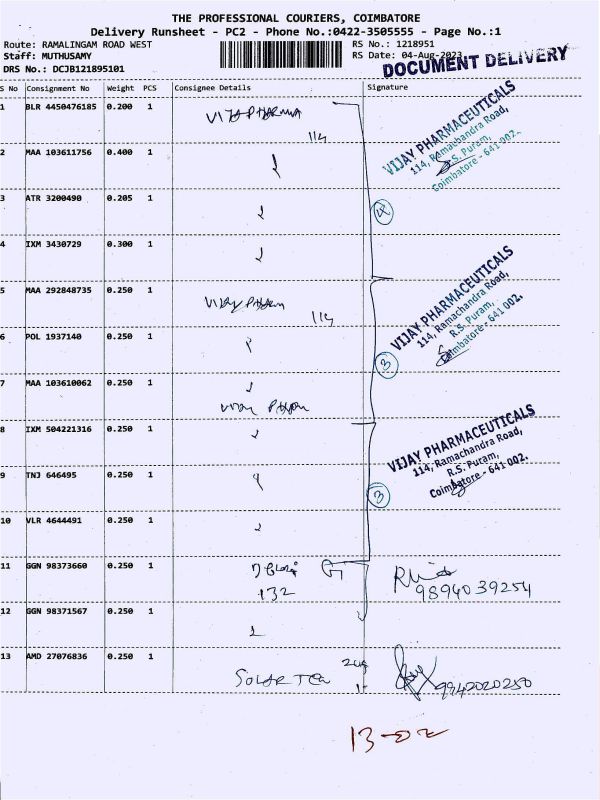 THE PROFESSIONAL COURIERS, COIMBATORE
Delivery Runsheet - PC2 - Phone No.:0422-3505555 - Page No.:1
Route: RAMALINGAM ROAD WEST
RS No.: 1218951
Staff: MUTHUSAMY
RS Date: 04-Aug-2023
DRS No.: DCJB121895101
DOCUMENT DELIVERY
S No Consignment No Weight PCS Consignee Details Signature
1 BLR 4450476185 0.200 1 VIJAY PHARMA
114
VIJAY PHARMACEUTICALS
114, Ramachandra Road,
R.S. Puram,
Coimbatore - 641 002.
2 MAA 103611756 0.400 1
3 ATR 3200490 0.205 1
4
4 IXM 3430729 0.300 1
5 MAA 292848735 0.250 1 VIJAY PHARMA
114
VIJAY PHARMACEUTICALS
114, Ramachandra Road,
R.S. Puram,
Coimbatore - 641 002.
6 POL 1937140 0.250 1
3
7 MAA 103610062 0.250 1
8 IXM 504221316 0.250 1
VIJAY PHARMACEUTICALS
114, Ramachandra Road,
R.S. Puram,
Coimbatore - 641 002.
9 TNJ 646495 0.250 1
3
10 VLR 4644491 0.250 1
11 GGN 98373660 0.250 1
132
9894039254
12 GGN 98371567 0.250 1
13 AMD 27076836 0.250 1 SOLAR TEC
9942020250
13-02